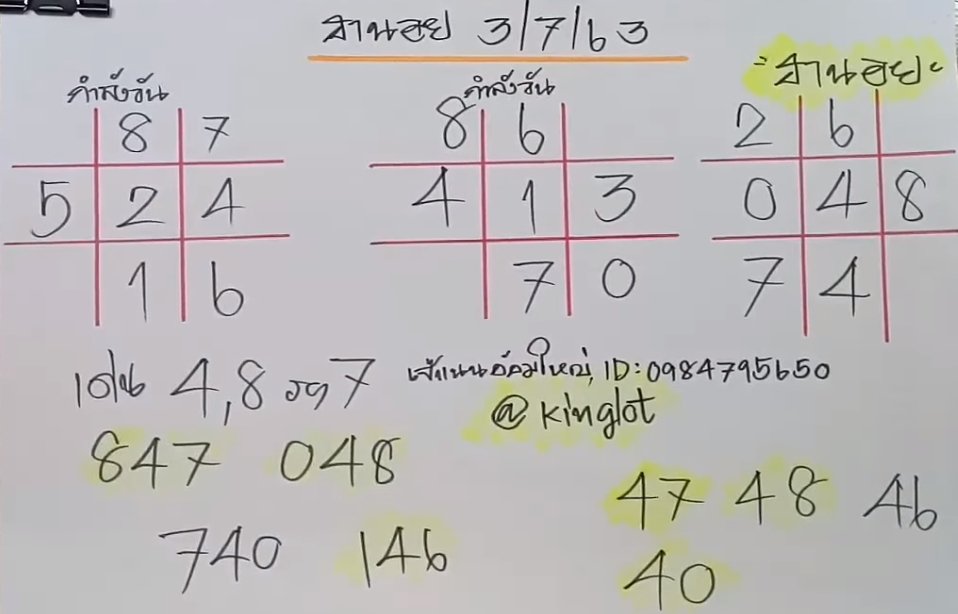 ฮานอย 3/7/63
กำลังวัน
8 7
5 2 4
1 6
กำลังวัน
8 6
4 1 3
7 0
ฮานอย
2 6
0 4 8
7 4
เด่น 4,8 รอง 7
ID: 0984795650
@ kinglot
847 048
740 146
47 48 46
40